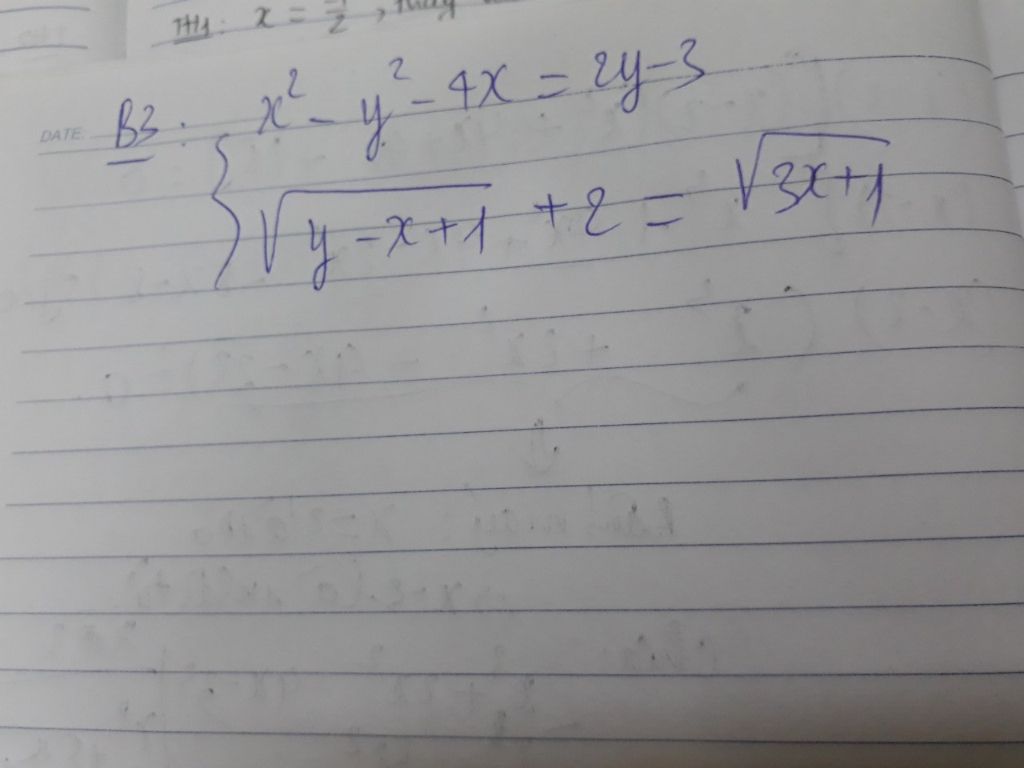 TH1: x = -1/2,
DATE: B3: x² - y² - 4x = 2y - 3
√(y - x + 1) + 2 = √(3x + 1)